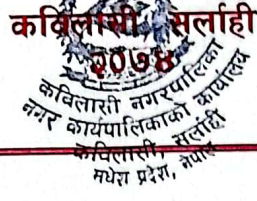 कविलासी, सर्लाही
२०७४
कविलासी नगरपालिका
नगर कार्यपालिकाको कार्यालय
कविलासी, सर्लाही
मधेश प्रदेश, नेपाल